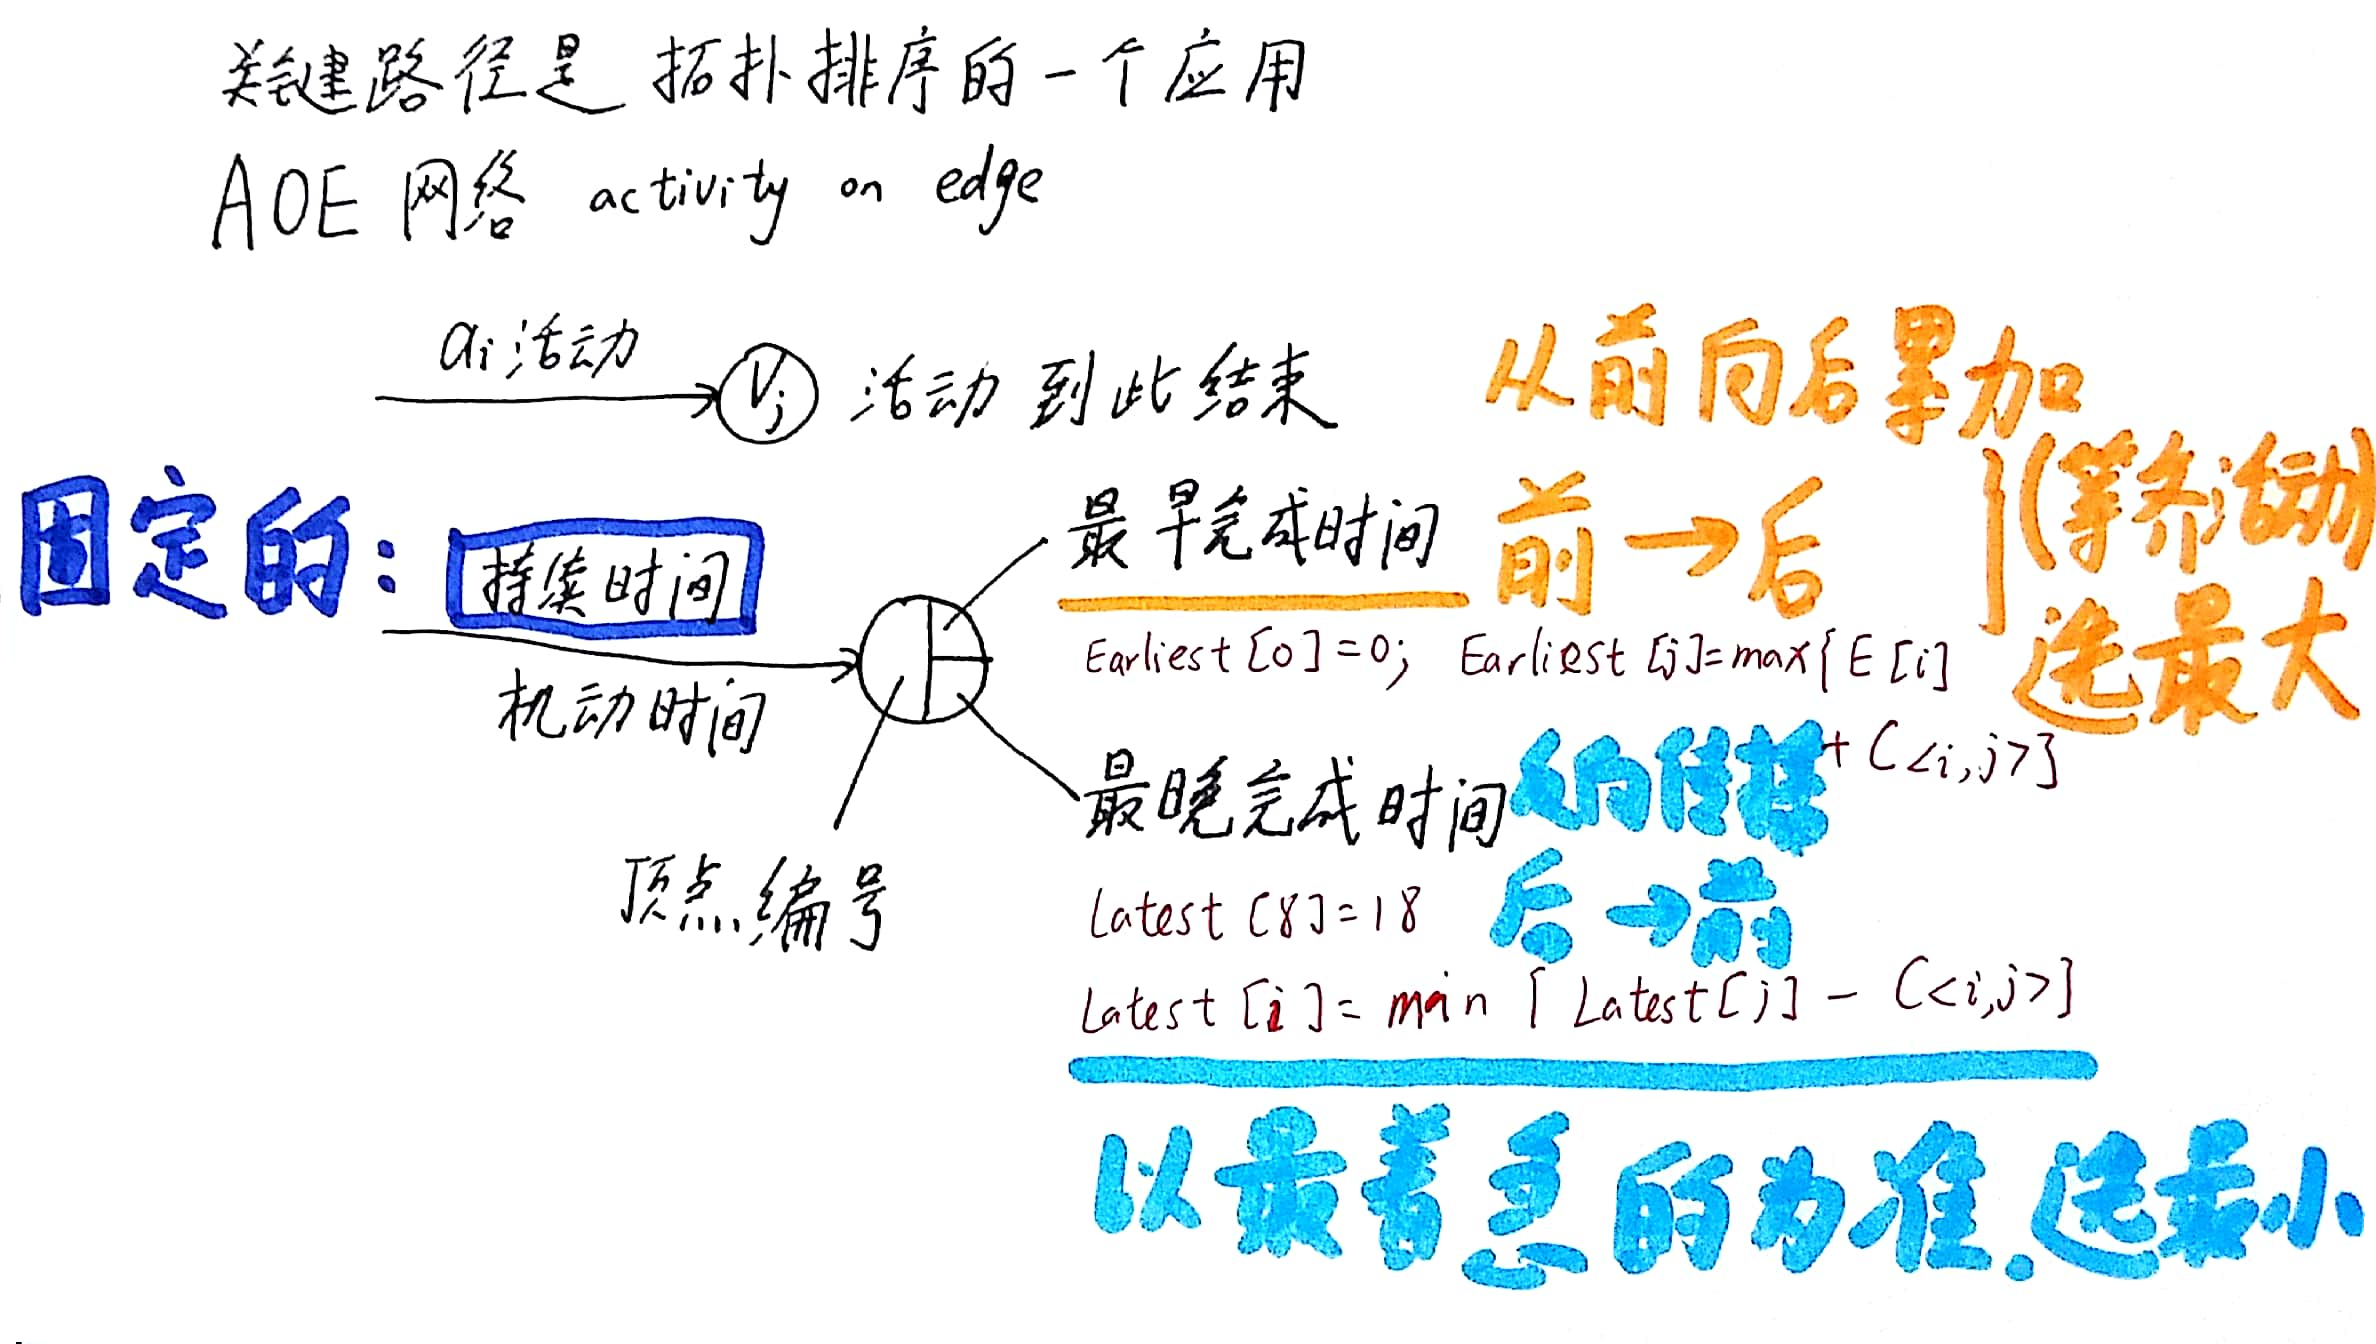 关键路径是拓扑排序的一个应用
AOE 网络 activity on edge
ai活动
Vj 活动到此结束
从前向后累加
固定的:
持续时间
机动时间
顶点编号
最早完成时间
前→后
(等齐活动)
选最大
Earliest [0]=0; Earliest [j]=max{E[i]
+ C<i,j>}
最晚完成时间
反向传播
Latest [8]=18
后→前
Latest [i]= min { Latest[j] - C<i,j>}
以最着急的为准.选最小